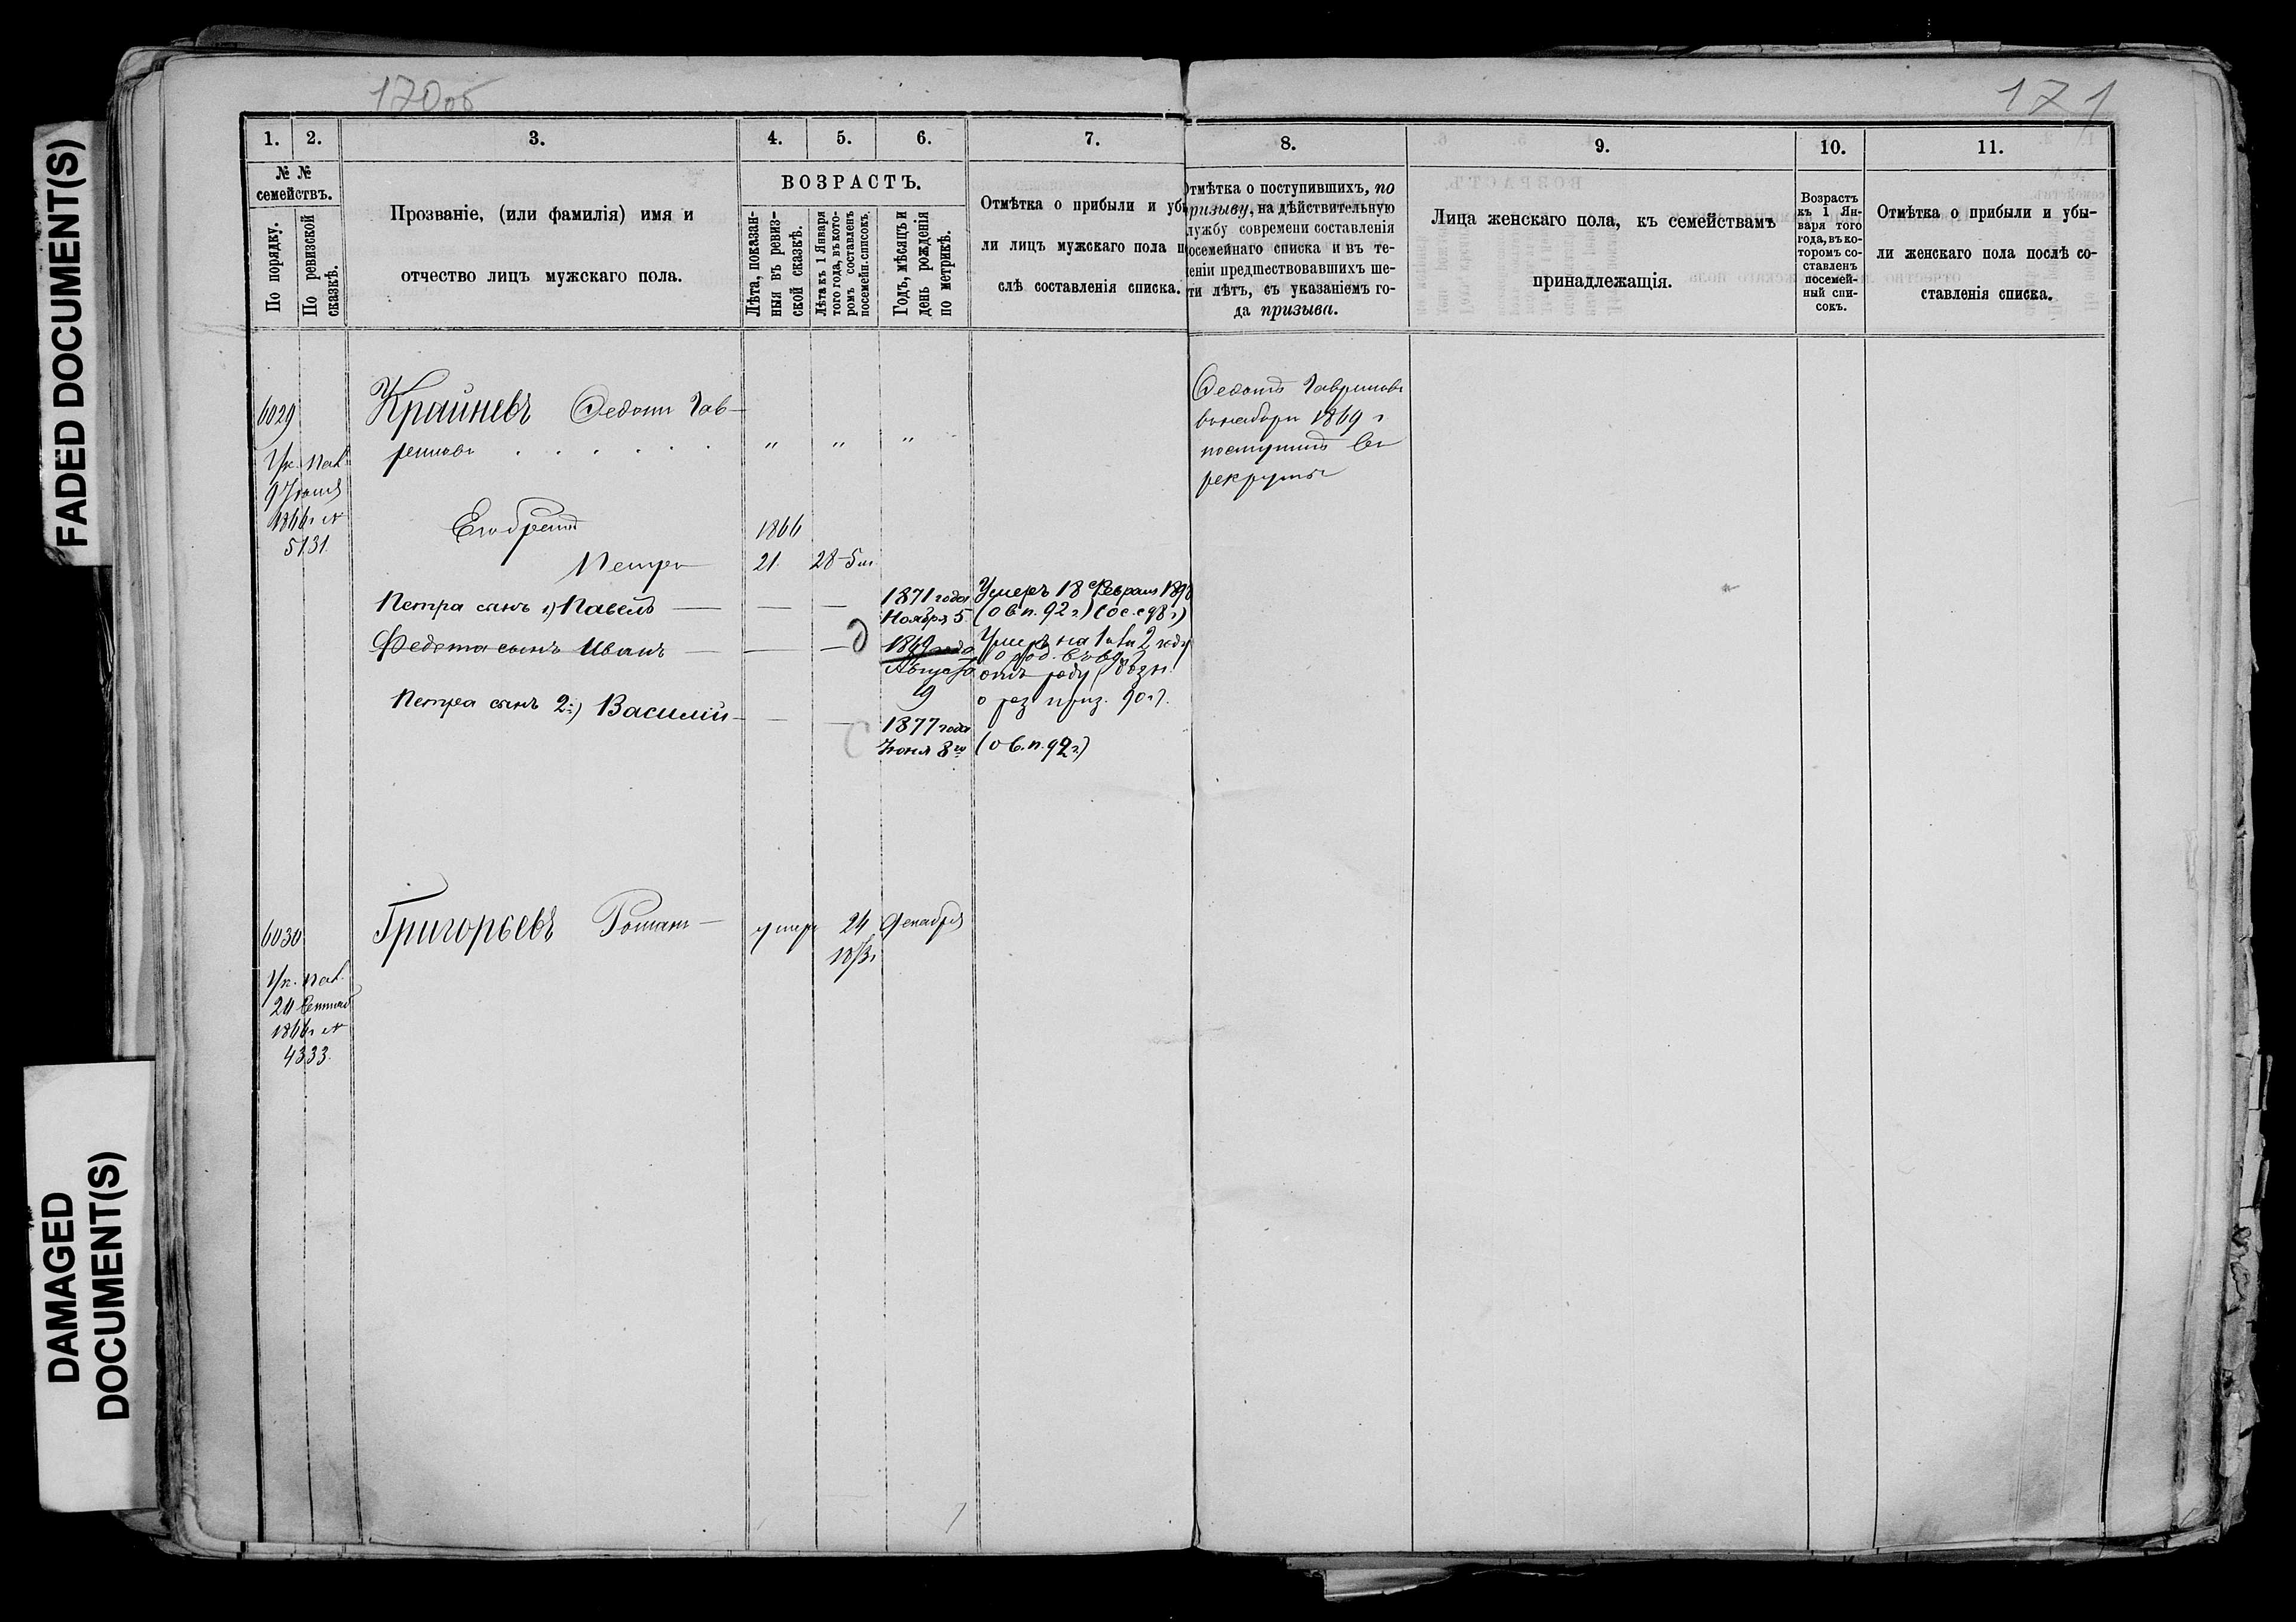 FADED DOCUMENT(S)
DAMAGED
DOCUMENT(S)
170об
171
1.
2.
3.
4.
5.
6.
7.
8.
9.
10.
11.
№ №
семействъ.
По порядку.
По ревизской
сказкѣ.
Прозваніе, (или фамилія) имя и
отчество лицъ мужскаго пола.
ВОЗРАСТЪ.
Лѣта, показан-
ныя въ ревиз-
ской сказкѣ.
Лѣта къ 1 Января
того года, въ кото-
ромъ составленъ
посемейн. списокъ.
Годъ, мѣсяцъ и
день рожденія
по метрикѣ.
Отмѣтка о прибыли и уб
ли лицъ мужскаго пола п
слѣ составленія списка.
Отмѣтка о поступившихъ, по
призыву, на дѣйствительную
лужбу современи составленія
осемейнаго списка и въ те-
еніи предшествовавшихъ ше-
ти лѣтъ, съ указаніемъ го-
да призыва.
Лица женскаго пола, къ семействамъ
принадлежащія.
Возрастъ
къ 1 Ян-
варя того
года, въ ко-
торомъ со-
ставленъ
посемей-
ный спи-
сокъ.
Отмѣтка о прибыли и убы-
ли женскаго пола послѣ со-
ставленія списка.
6029
Ук. Пал.
9 Іюня
1866 г №
5131.
Крайневъ Федотъ Гав-
риловъ . . . . . . " " "
Федотъ Гавриловъ
в наборъ 1869 г
поступилъ въ
рекруты
Его братъ 1866
Петръ 21. 28-5 м
Петра сынъ 1) Павелъ — — — 1871 года
Ноября 5
Умеръ 18 Февраля 1898
(о в п. 92 г) (ос. с 98 г)
Федота сынъ Иванъ — — — 1869 года
Августа
9
Умеръ на 1 или 2 году
отъ роду
90 г).
Петра сынъ 2й) Василій — — — 1877 года
Іюня 8го (о в. п. 92 г)
6030
Ук. Пал.
24
1866 г №
4333.
Григорьевъ Романъ — умеръ 24 Декабря
1873 г